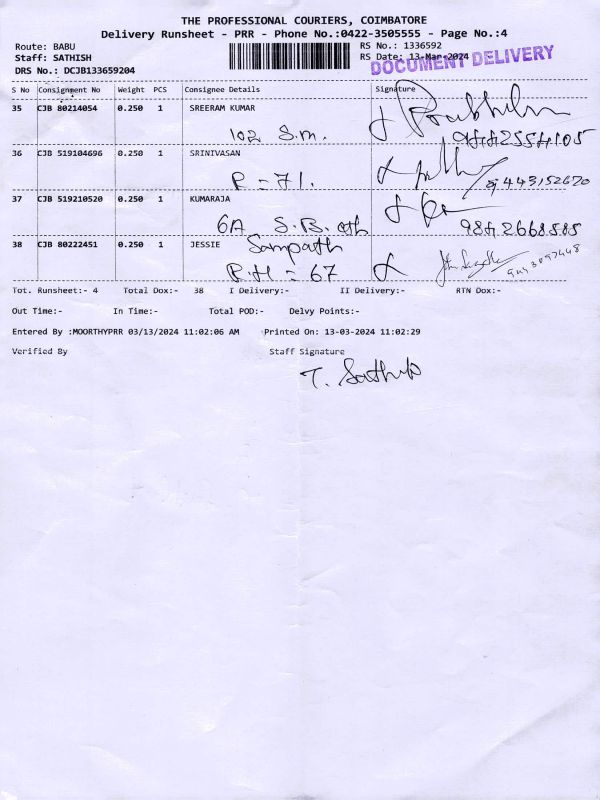 THE PROFESSIONAL COURIERS, COIMBATORE
Delivery Runsheet - PRR - Phone No.:0422-3505555 - Page No.:4
Route: BABU
RS No.: 1336592
Staff: SATHISH
RS Date: 13-Mar-2024
DOCUMENT DELIVERY
DRS No.: DCJB133659204
S No Consignment No Weight PCS Consignee Details Signature
35 CJB 80214054 0.250 1 SREERAM KUMAR
102 S.m.
36 CJB 519104696 0.250 1 SRINIVASAN
R - 71.
37 CJB 519210520 0.250 1 KUMARAJA
6A S.B.
9842668585
38 CJB 80222451 0.250 1 JESSIE Sampath
R.H - 67
Tot. Runsheet:- 4 Total Dox:- 38 I Delivery:- II Delivery:- RTN Dox:-
Out Time:- In Time:- Total POD:- Delvy Points:-
Entered By :MOORTHYPRR 03/13/2024 11:02:06 AM Printed On: 13-03-2024 11:02:29
Verified By Staff Signature
T. Sathish